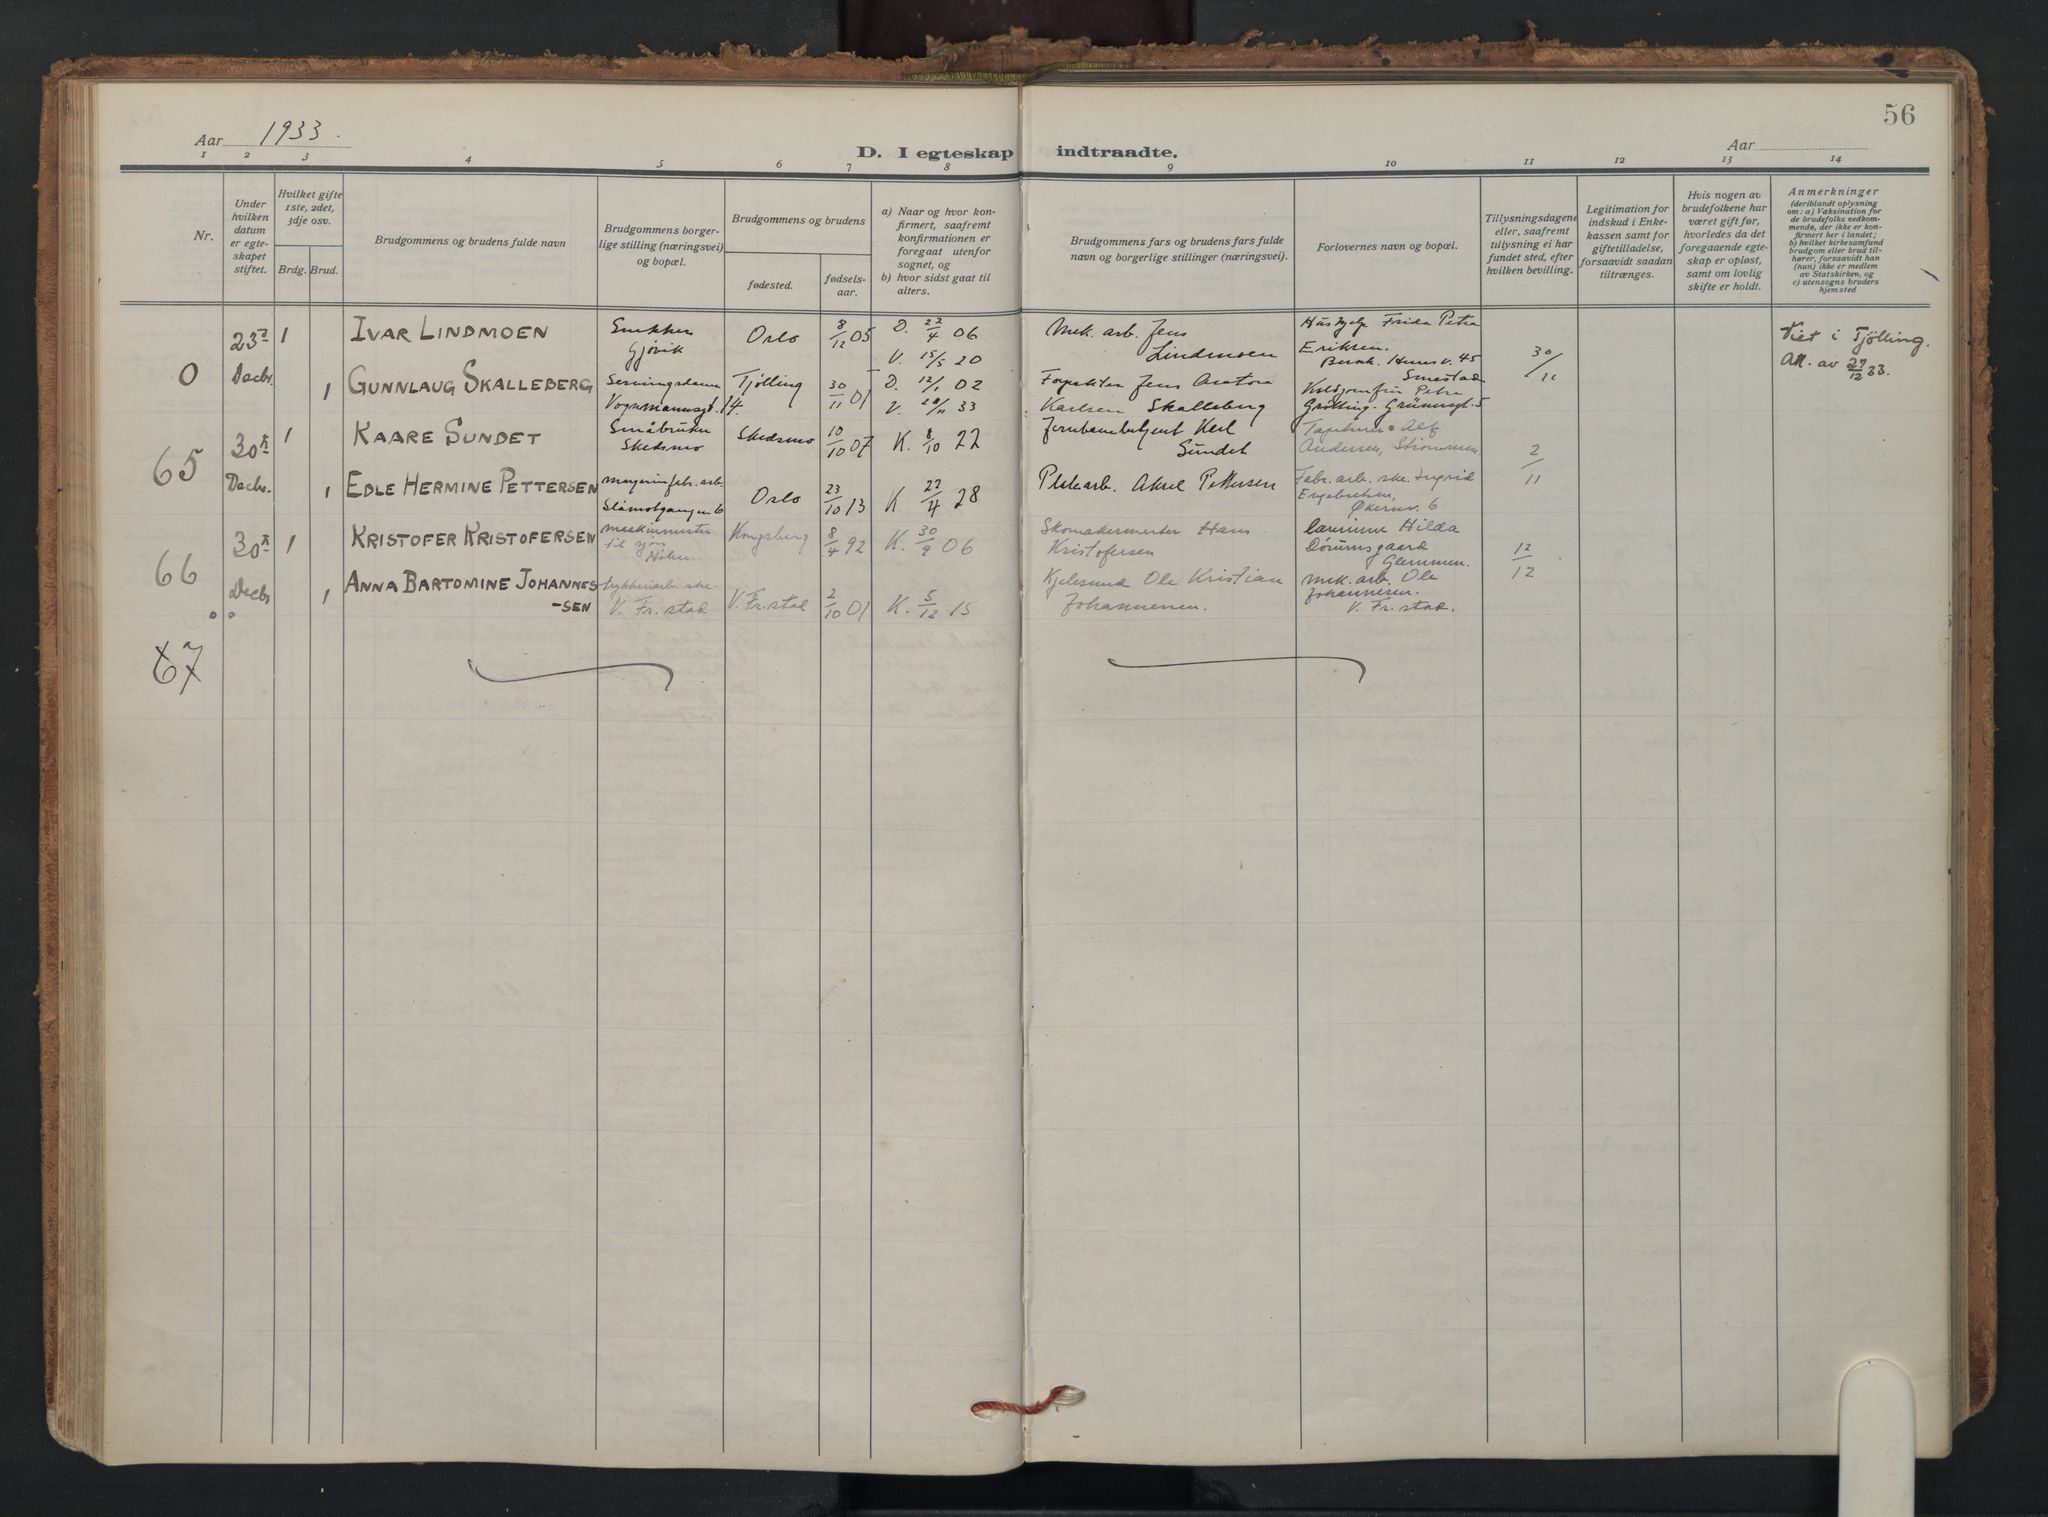 56
Aar 1933.
D. I egteskap indtraadte.
Aar
1 2 3 4 5 6 7 8 9 10 11 12 13 14
Nr.
Under hvilken datum er egteskapet stiftet.
Hvilket gifte 1ste, 2det, 3dje osv.
Brdg. Brud.
Brudgommens og brudens fulde navn
Brudgommens borgerlige stilling (næringsvei) og bopæl.
Brudgommens og brudens
fødested.
fødselsaar.
a) Naar og hvor konfirmert, saafremt konfirmationen er foregaat utenfor sognet, og
b) hvor sidst gaat til alters.
Brudgommens fars og brudens fars fulde navn og borgerlige stillinger (næringsvei).
Forlovernes navn og bopæl.
Tillysningsdagene eller, saafremt tillysning ei har fundet sted, efter hvilken bevilling.
Legitimation for indskud i Enkekassen samt for giftetilladelse, forsaavidt saadan tiltrænges.
Hvis nogen av brudefolkene har været gift før, hvorledes da det foregaaende egteskap er opløst, samt om lovlig skifte er holdt.
Anmerkninger
(deriblandt oplysning om: a) Vaksination for de brudefolks vedkommende, der ikke er konfirmert her i landet; b) hvilket kirkesamfund brudgom eller brud tilhører, forsaavidt han (hun) ikke er medlem av Statskirken, og c) utensogns bruders hjemsted
0
23 Decbr.
1
IVAR LINDMOEN
Snekker
Gjøvik
Oslo
8/12 05
D. 22/4 06
V. 15/5 20
Mek. arb. Jens
Lindmoen
Frida Petra
Eriksen.
Smestad
30/11
Viet i Tjølling.
Att. av 27/12 33.
1
GUNNLAUG SKALLEBERG
Serveringsdame
Vognmannsgt. 14.
Tjølling
30/11 01
D. 12/1 02
V. 28/11 33
Forpakter Jens
Karlsen Skalleberg
Petra
Grølling. Grünersgt. 5
65
30 Decbr.
1
KAARE SUNDET
Småbruker
Skedsmo
Skedsmo
10/10 07
K. 8/10 22
Jernbanebetjent Karl
Sundet
Tapetserer Alf
Andersen, Strømmen
2/11
1
EDLE HERMINE PETTERSEN
Slåmotgangen 6
Oslo
23/10 13
K 22/4 28
Platearb. Aksel Pettersen
Fabr. arb. ske. Ingrid
Engebretsen,
Økernv. 6
66
30 Decbr
1
KRISTOFER KRISTOFERSEN
maskinmester
til sjøs
Hølen
Kongsberg
8/4 92
K. 30/9 06
Skomakermester Hans
Kristofersen
Lærerinne Hilda
Dørumsgaard
Glemmen.
12/12
1
ANNA BARTOMINE JOHANNES
-SEN
trykkeriarb. ske.
V. Fr.stad
V. Fr.stad
2/10 01
K. 5/12 15
Ole Kristian
Johannesen.
mek. arb. Ole
Johannesen.
V. Fr. stad.
67